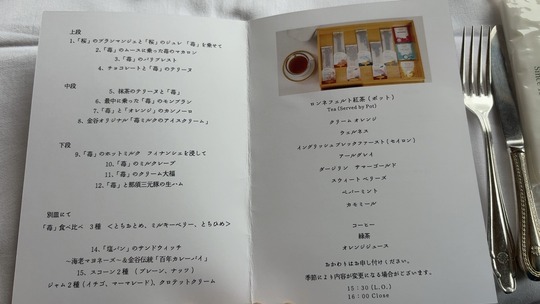 上段
1.「桜」のブランマンジェと「桜」のジュレ 「苺」を乗せて
2.「苺」のムースに乗った苺のマカロン
3.「苺」のパリブレスト
4. チョコレートと「苺」のテリーヌ
中段
5. 抹茶のテリーヌと「苺」
6. 最中に乗った「苺」のモンブラン
7.「苺」と「オレンジ」のカンノーロ
8. 金谷オリジナル「苺ミルクのアイスクリーム」
下段
9.「苺」のホットミルク フィナンシェを浸して
10.「苺」のミルクレープ
11.「苺」のクリーム大福
12.「苺」と那須三元豚の生ハム
別皿にて
「苺」食べ比べ 3種 <とちおとめ、ミルキーベリー、とちひめ>
14.「塩パン」のサンドウィッチ
~海老マヨネーズ~&金谷伝統「百年カレーパイ」
15. スコーン2種 (プレーン、ナッツ)
ジャム2種(イチゴ、マーマレード)、クロテッドクリーム
ロンネフェルト紅茶(ポット)
Tea (Served by Pot)
クリームオレンジ
ウェルネス
イングリッシュブレックファースト(セイロン)
アールグレイ
ダージリン サマーゴールド
スウィートベリーズ
ペパーミント
カモミール
コーヒー
緑茶
オレンジジュース
おかわりはお申し付けください。
季節により内容が変更になる場合がございます。
15:30 (L.O.)
16:00 Close